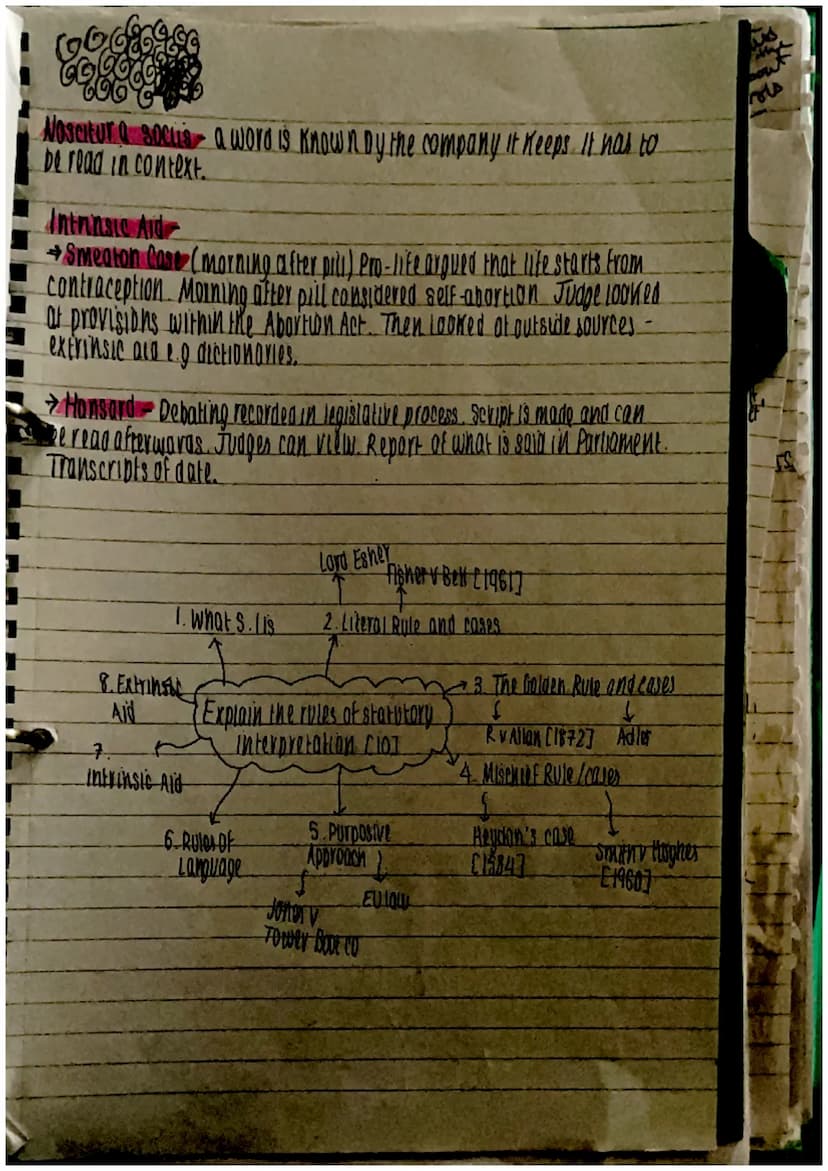 Noscitur a sociis - a word is known by the company it keeps. It has to
be read in context.
Intrinsic Aid -
→ Smeaton Case (morning after pill) Pro-life argued that life starts from
contraception. Morning after pill considered self-abortion. Judge looked
at provisions within the Abortion Act. Then looked at outside sources -
extrinsic aid e.g dictionaries.
→ Hansard - Debating recorded in legislative process. Script is made and can
be read afterwards. Judges can view. Report of what is said in Parliament.
Transcripts of date.
Lord Esher
Fisher v Bell [1961]
1. What S.I is
2. Literal Rule and cases
8. Extrinsic
Aid
3. The Golden Rule and cases
Explain the rules of statutory
interpretation [10]
R v Allan [1872]
Adler
7.
Intrinsic Aid
4. Mischief Rule/cases
6. Rules of
Language
5. Purposive
Approach
Heydon's case
[1584]
Smith v Hughes
[1960]
EU law
Jones v
Tower Boot co